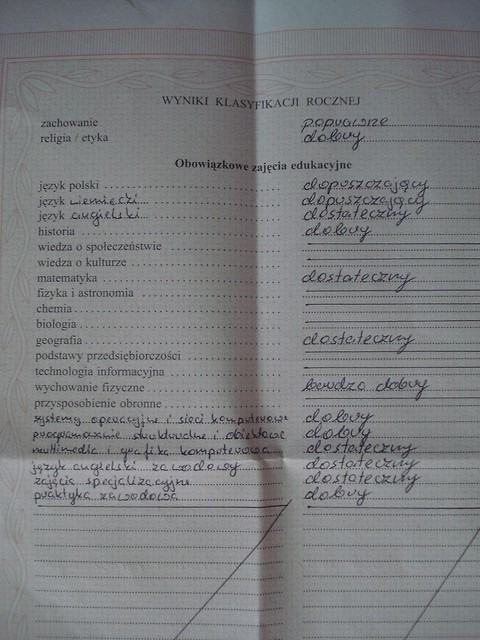 WYNIKI KLASYFIKACJI ROCZNEJ
zachowanie poprawne
religia / etyka dobry
Obowiązkowe zajęcia edukacyjne
język polski dopuszczający
język niemiecki dopuszczający
język angielski dostateczny
historia dobry
wiedza o społeczeństwie
wiedza o kulturze
matematyka dostateczny
fizyka i astronomia
chemia
biologia
geografia dostateczny
podstawy przedsiębiorczości
technologia informacyjna
wychowanie fizyczne bardzo dobry
przysposobienie obronne
systemy operacyjne i sieci komputerowe dobry
programowanie strukturalne i obiektowe dobry
multimedia i grafika komputerowa dostateczny
język angielski zawodowy dostateczny
zajęcia specjalizacyjne dostateczny
praktyka zawodowa dobry